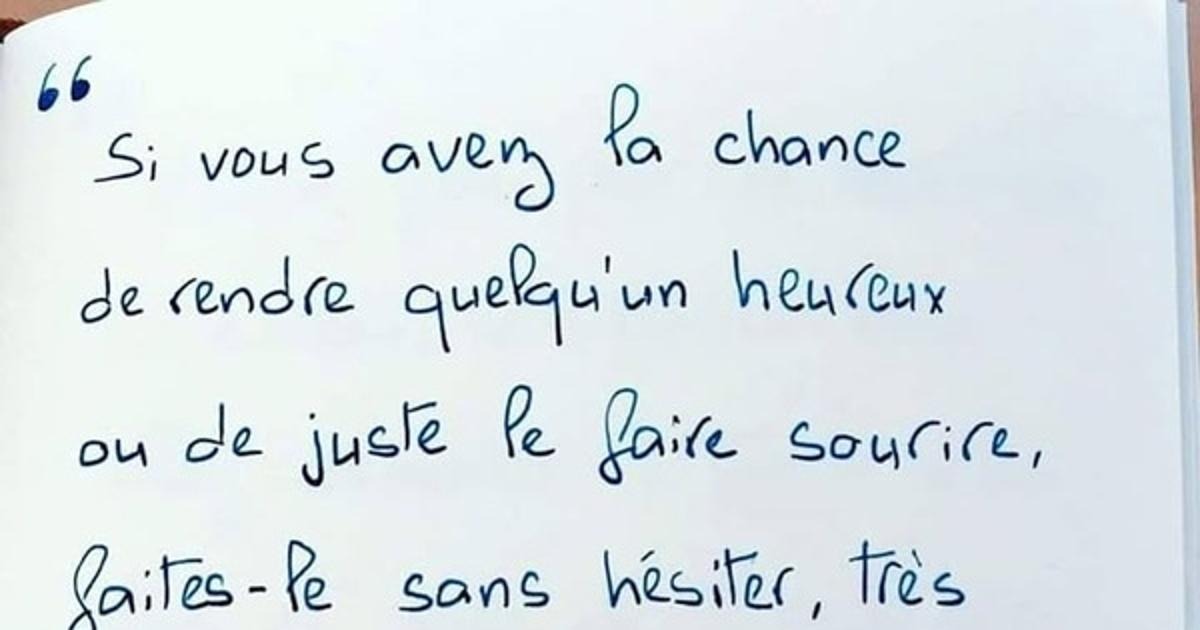 “
Si vous avez la chance
de rendre quelqu'un heureux
ou de juste le faire sourire,
faites-le sans hésiter, très